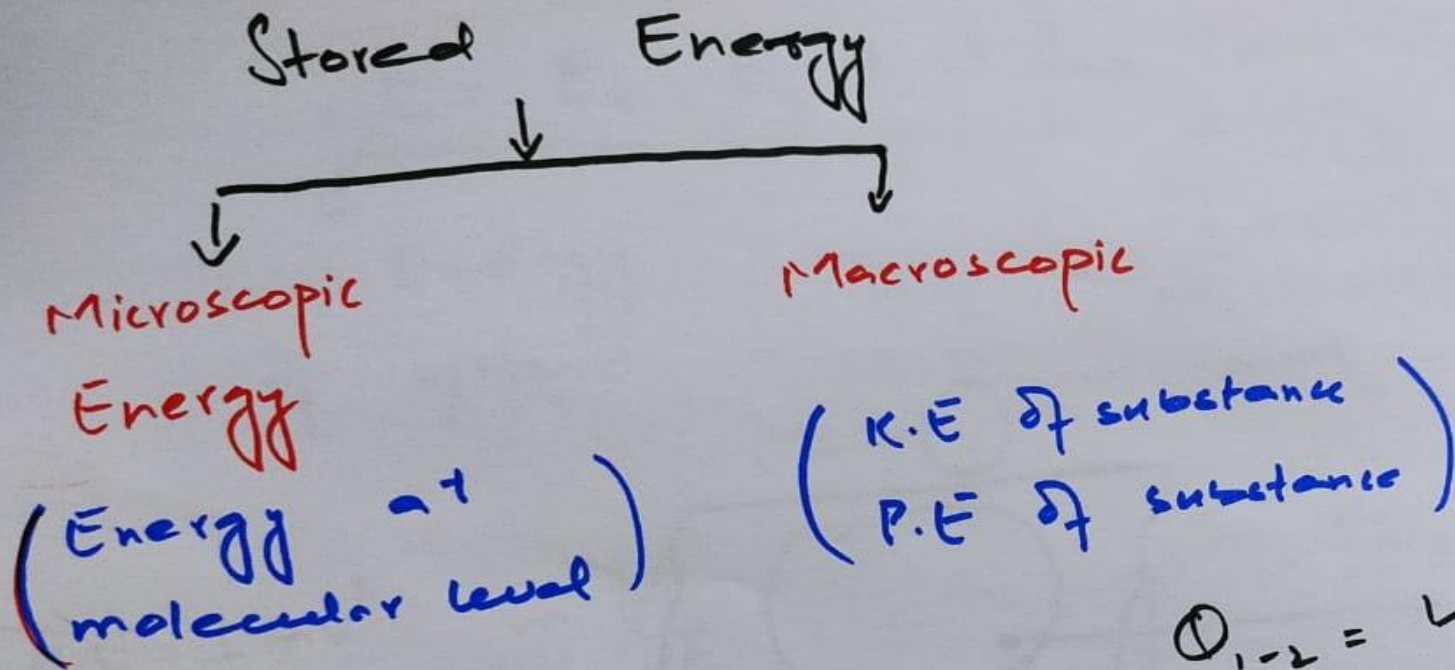 Stored Energy
Microscopic
Energy
(Energy at
molecular level)
Macroscopic
(K.E of substance
P.E of substance)
Q1-2 =